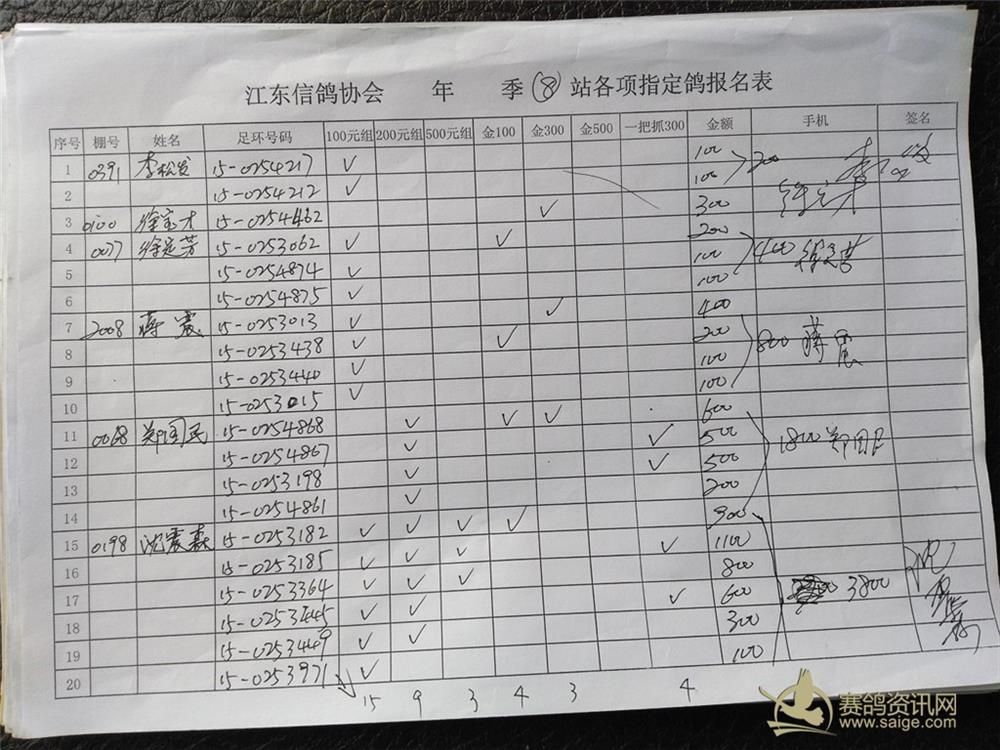 江东信鸽协会 年 季 ⑧ 站各项指定鸽报名表
序号 棚号 姓名 足环号码 100元组 200元组 500元组 金100 金300 金500 一把抓300 金额 手机 签名
1 0391 李松发 15-0254217 ✓ 100 200
2 15-0254212 ✓ 100
3 0100 徐宝才 15-0254462 ✓ 300
4 0077 徐定芳 15-0253062 ✓ ✓ 200 400
5 15-0254874 ✓ 100
6 15-0254875 ✓ 100
7 2008 蒋震 15-0253013 ✓ ✓ 400 800 蒋震
8 15-0253438 ✓ ✓ 200
9 15-0253440 ✓ 100
10 15-0253015 ✓ 100
11 0068 郑国民 15-0254868 ✓ ✓ ✓ 600 1800 郑国民
12 15-0254867 ✓ ✓ 500
13 15-0253198 ✓ ✓ 500
14 15-0254861 ✓ 200
15 0198 沈震森 15-0253182 ✓ ✓ ✓ ✓ 900 3800
16 15-0253185 ✓ ✓ ✓ ✓ 1100
17 15-0253364 ✓ ✓ ✓ 800
18 15-0253445 ✓ ✓ ✓ 600
19 15-0253449 ✓ ✓ 300
20 15-0253971 ✓ 100
15 9 3 4 3 4
赛鸽资讯网
www.saige.com